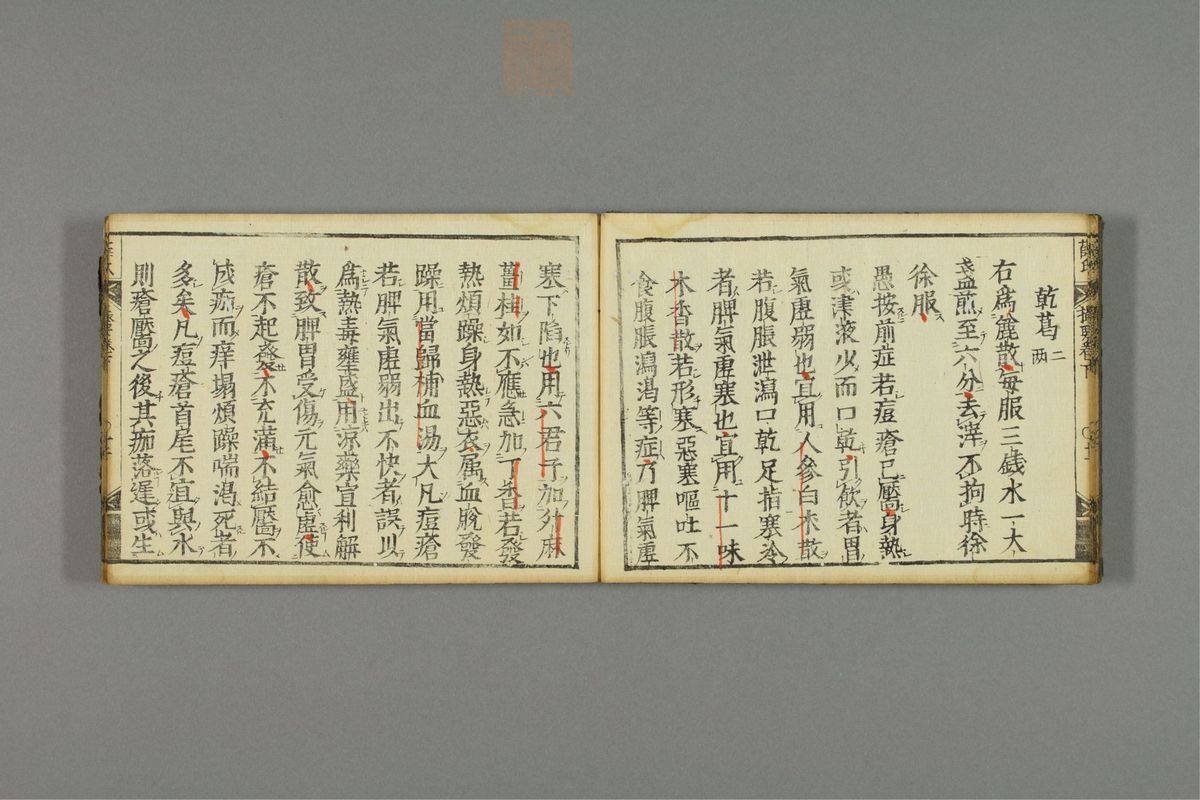 乾葛二両
右爲麄散毎服三錢水一大
盞煎至六分去滓不拘時徐
徐服
愚按前症若痘瘡已靨身熱
或津液少而口乾引飲者胃
氣虚弱也宜用人參白朮散
若腹脹泄瀉口乾足指寒冷
者脾氣虚寒也宜用十一味
木香散若形寒惡寒嘔吐不
食腹脹瀉渇等症乃脾氣虚
寒下陷也用六君子加升麻
薑桂如不應急加丁香若發
熱煩躁身熱惡衣属血脫發
躁用當歸補血湯大凡痘瘡
若脾氣虚弱出不快者誤以
爲熱毒壅盛用凉藥宣利解
散致脾胃受傷元氣愈虚使
瘡不起發不充満不結靨不
成痂而痒塌煩躁喘渇死者
多矣凡痘瘡首尾不宜與水
則瘡靨之後其痂落遲或生